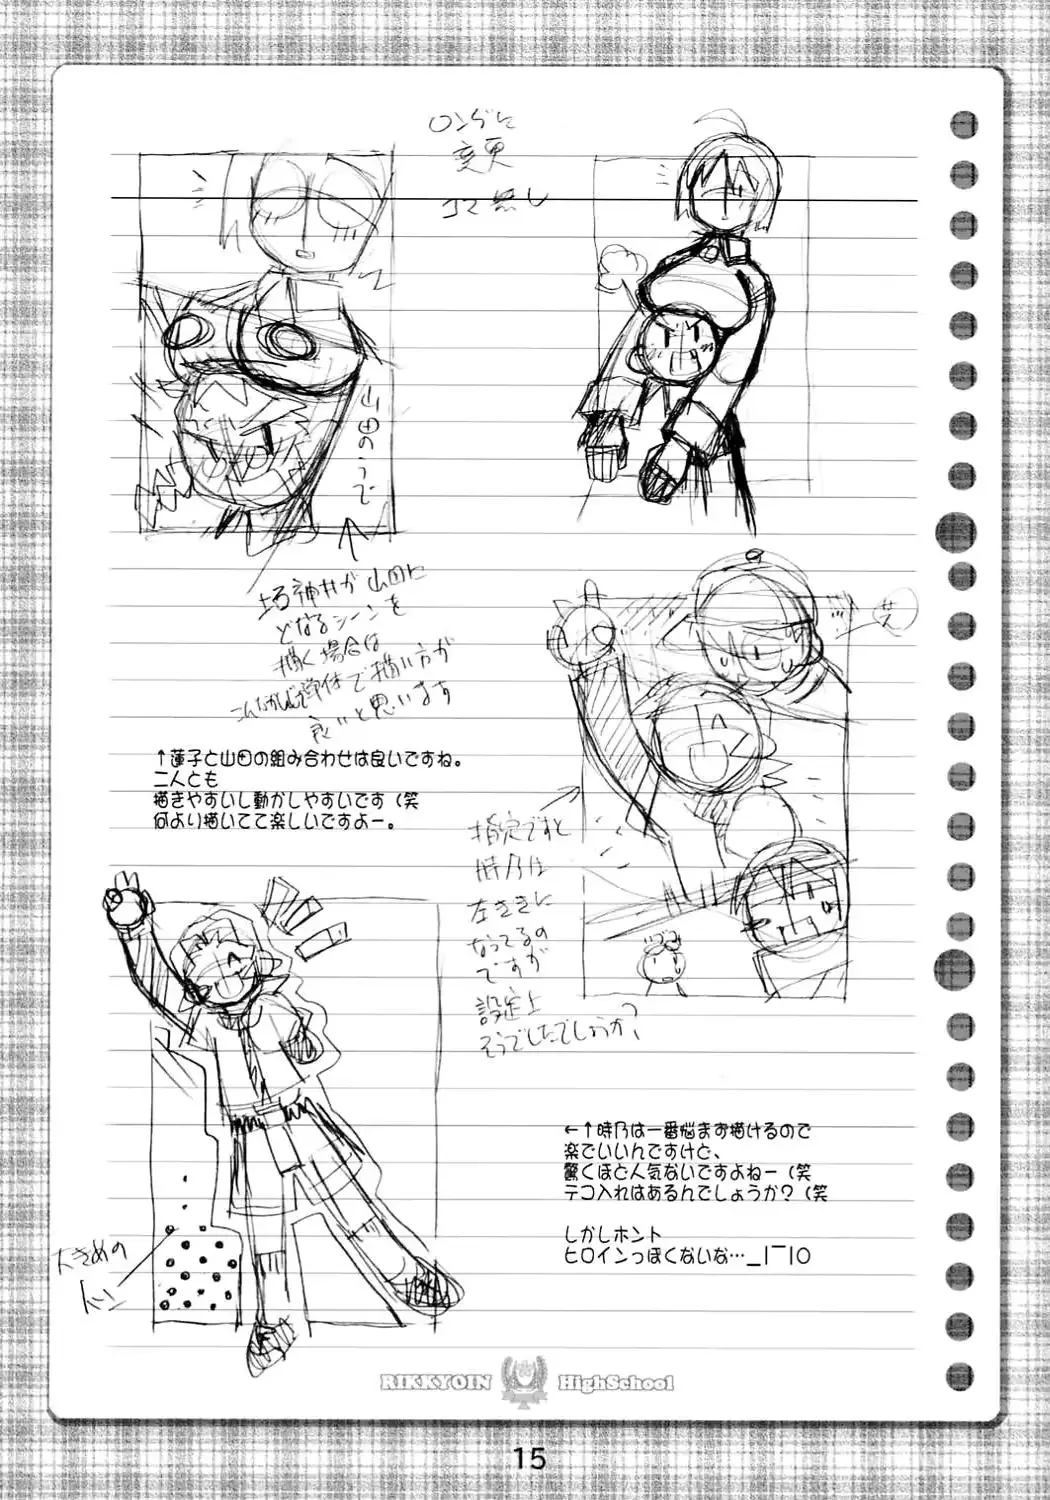 ロングに
変更
コマ無し
山田の上で
どなるシーンを
描く場合は
良いと思います
↑蓮子と山田の組み合わせは良いですね。
二人とも
描きやすいし動かしやすいです（笑
何より描いてて楽しいですよー。
指定ですと
時乃は
左ききに
なってるの
ですが
設定上
そうでしたでしょうか？
←↑時乃は一番悩まず描けるので
楽でいいんですけど、
驚くほど人気ないですよねー（笑
テコ入れはあるんでしょうか？（笑
しかしホント
ヒロインっぽくないな…_|￣|○
大きめの
RIKKYOIN HighSchool
15